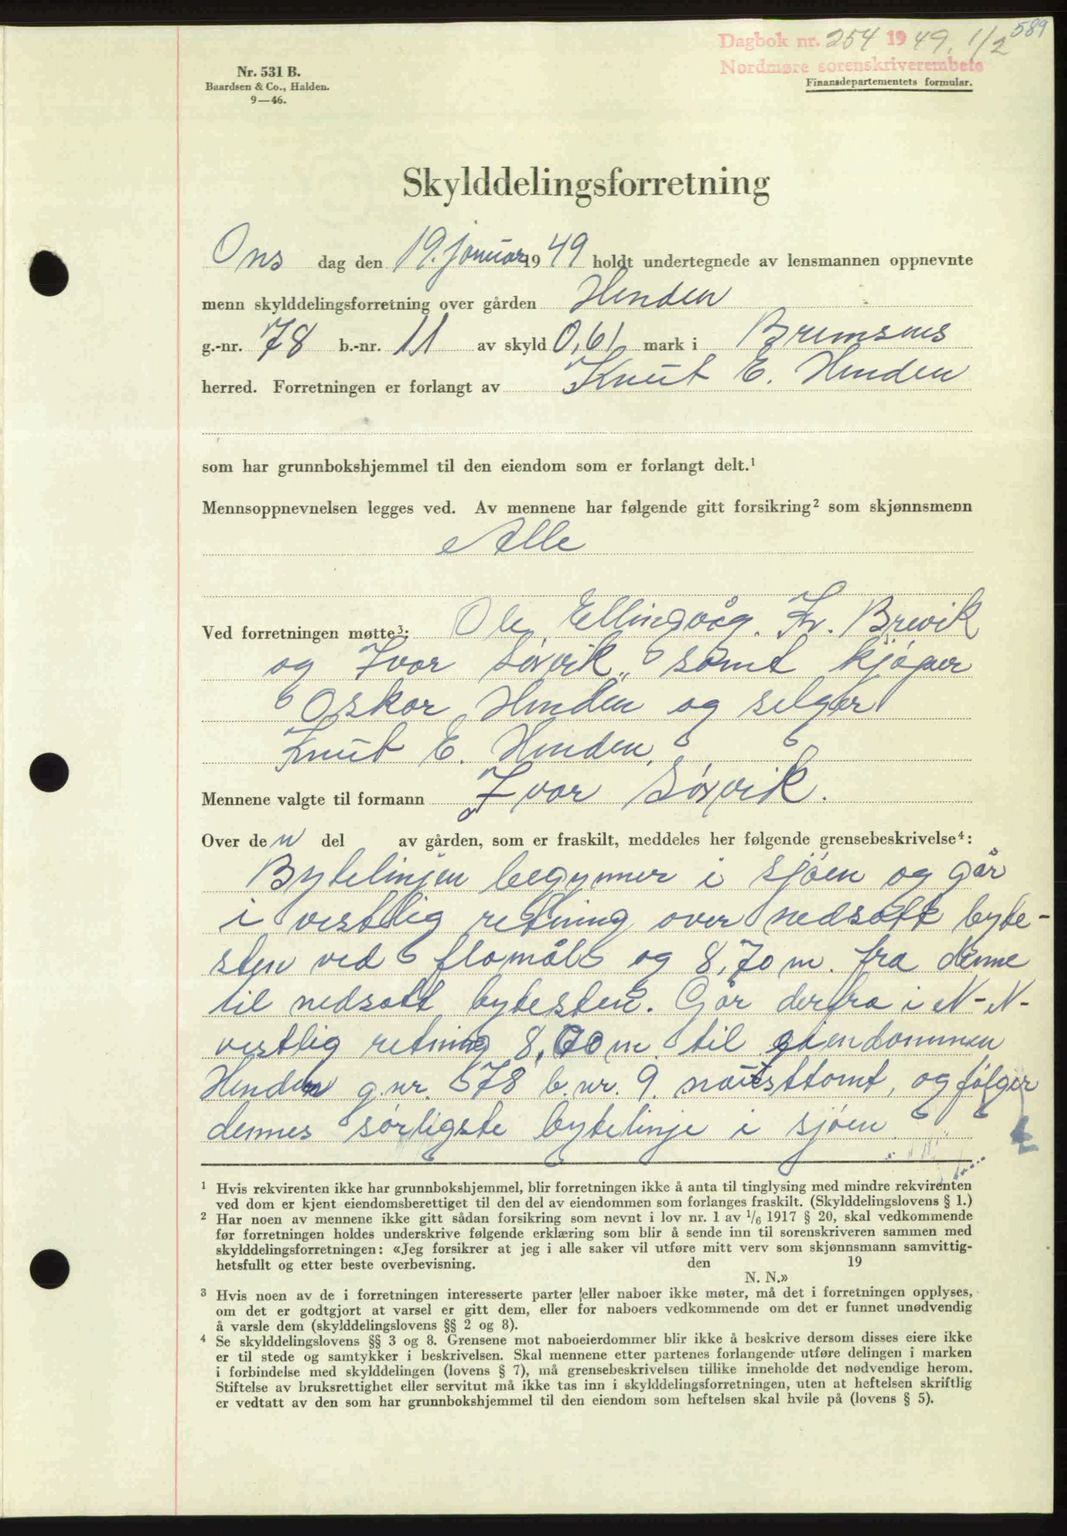 589
Dagbok nr. 254 1949. 1/2
Nordmøre sorenskriverembete
Nr. 531 B.
Baardsen & Co., Halden.
9—46.
Finansdepartementets formular.
Skylddelingsforretning
Ons dag den 19. januar 1949 holdt undertegnede av lensmannen oppnevnte
menn skylddelingsforretning over gården Henden
g.-nr. 78 b.-nr. 11 av skyld 0,61 mark i Bremsnes
herred. Forretningen er forlangt av Knut E. Henden
som har grunnbokshjemmel til den eiendom som er forlangt delt.¹
Mennsoppnevnelsen legges ved. Av mennene har følgende gitt forsikring² som skjønnsmenn
Alle
Ved forretningen møtte³: Ole Ellingvåg. Kr. Brevik
og Ivar Sørvik, samt kjøper
Oskar Henden og selger
Knut E. Henden.
Mennene valgte til formann Ivar Sørvik.
Over den del av gården, som er fraskilt, meddeles her følgende grensebeskrivelse⁴:
Bytelinjen begynner i sjøen og går
i vestlig retning over nedsatt byte-
sten ved flomål og 8,70 m. fra denne
til nedsatt bytesten. Går derfra i N-N-
vestlig retning 8,60 m. til eiendommen
Henden g.nr. 78 b.nr. 9. nausttomt, og følger
dennes sørligste bytelinje i sjøen.
¹ Hvis rekvirenten ikke har grunnbokshjemmel, blir forretningen ikke å anta til tinglysing med mindre rekvirenten
ved dom er kjent eiendomsberettiget til den del av eiendommen som forlanges fraskilt. (Skylddelingslovens § 1.)
² Har noen av mennene ikke gitt sådan forsikring som nevnt i lov nr. 1 av 1/6 1917 § 20, skal vedkommende
før forretningen holdes underskrive følgende erklæring som blir å sende inn til sorenskriveren sammen med
skylddelingsforretningen: «Jeg forsikrer at jeg i alle saker vil utføre mitt verv som skjønnsmann samvittig-
hetsfullt og etter beste overbevisning. den 19
N. N.»
³ Hvis noen av de i forretningen interesserte parter eller naboer ikke møter, må det i forretningen opplyses,
om det er godtgjort at varsel er gitt dem, eller for naboers vedkommende om det er funnet unødvendig
å varsle dem (skylddelingslovens §§ 2 og 8).
⁴ Se skylddelingslovens §§ 3 og 8. Grensene mot naboeierdommer blir ikke å beskrive dersom disses eiere ikke
er til stede og samtykker i beskrivelsen. Skal mennene etter partenes forlangende utføre delingen i marken
i forbindelse med skylddelingen (lovens § 7), må grensebeskrivelsen tillike inneholde det nødvendige herom.
Stiftelse av bruksrettighet eller servitut må ikke tas inn i skylddelingsforretningen, uten at heftelsen skriftlig
er vedtatt av den som har grunnbokshjemmel til den eiendom som heftelsen skal hvile på (lovens § 5).